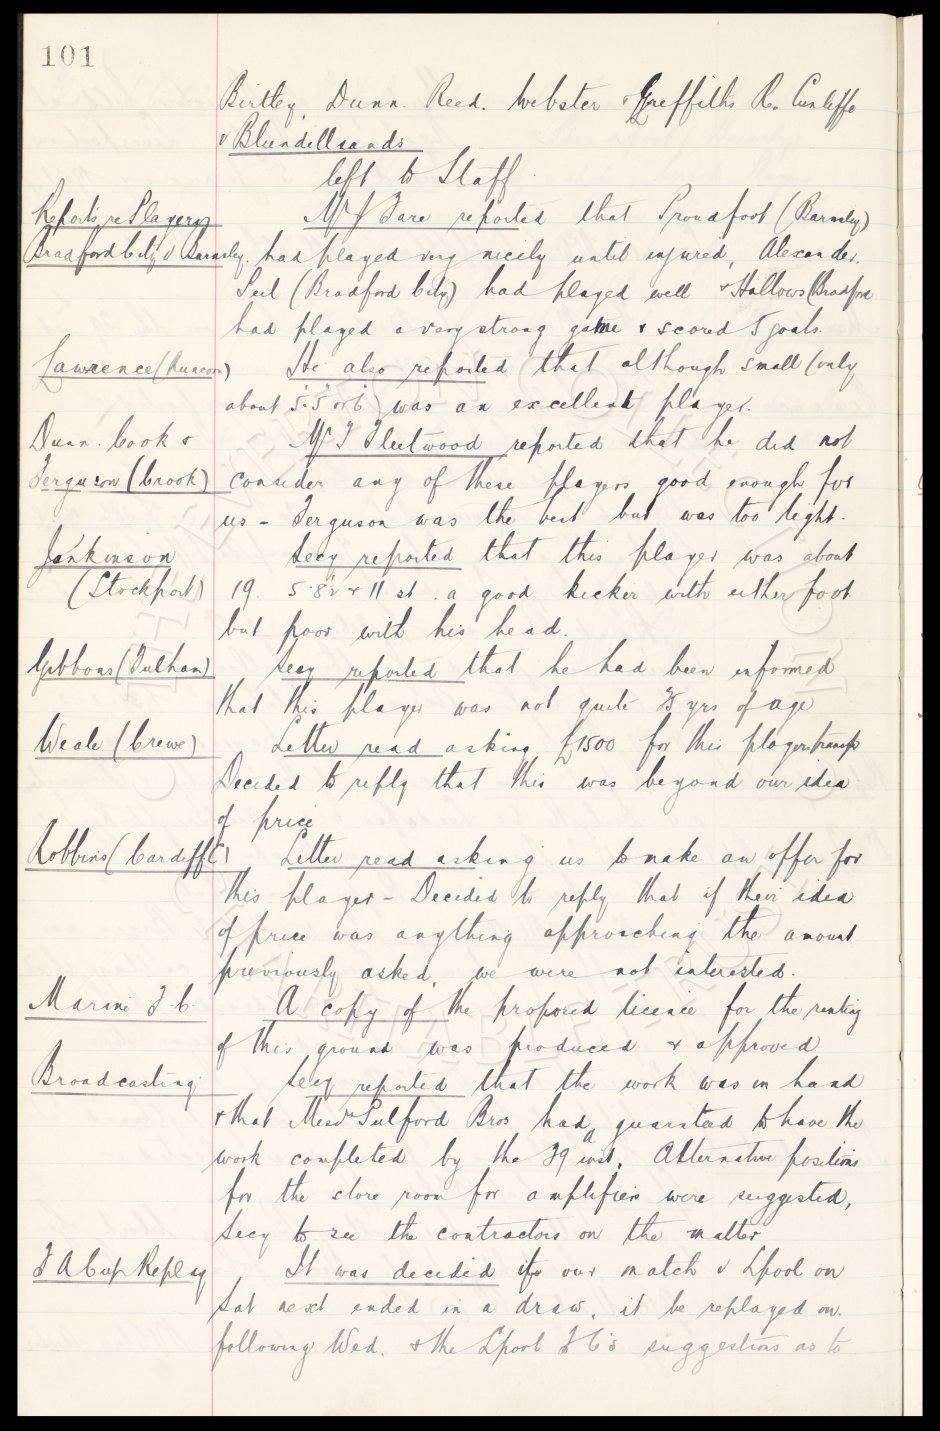 101
Birtley, Dunn. Reed. Webster & Griffiths Re. Cunliffe
v Blundellsands
left to Staff
Reports re Players Mr J Fare reported that Proudfoot (Barnsley)
Bradford City v Barnsley. had played very nicely until injured, Alexander.
Peel (Bradford City) had played well & Hallows (Bradford
had played a very strong game & scored 5 goals.
Lawrence (Runcorn) He also reported that although small (only
about 5.5 or 6) was an excellent player.
Dunn. Cook & Mr T Fleetwood reported that he did not
Ferguson (Crook) consider any of these players good enough for
us - Ferguson was the best but was too light.
Jenkinson Secy reported that this player was about
(Stockport) 19. 5.8½ & 11 st. a good kicker with either foot
but poor with his head.
Gibbons (Fulham) Secy reported that he had been informed
that this player was not quite 25 yrs of age
Weale (Crewe) Letter read asking £1500 for this players transf
Decided to reply that this was beyond our idea
of price
Robbins (Cardiff C) Letter read asking us to make an offer for
this player - Decided to reply that if their idea
of price was anything approaching the amount
previously asked, we were not interested.
Marine F.C. A copy of the proposed licence for the renting
of this ground was produced & approved
Broadcasting Secy reported that the work was in hand
& that Messrs Pulford Bros had guaranteed to have the
work completed by the 29 inst. Alternative positions
for the store room for amplifiers were suggested,
Secy to see the contractors on the matter
F A Cup Replay It was decided if our match v Lpool on
Sat next ended in a draw, it be replayed on.
following Wed. & the Lpool F C's suggestions as to